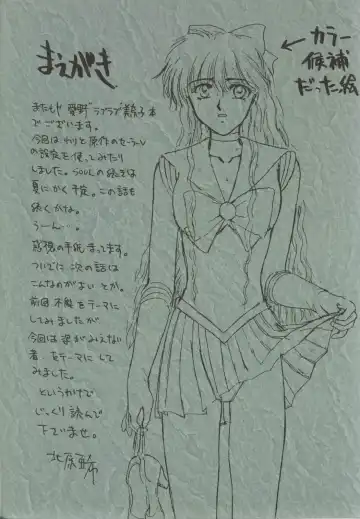 まえがき
またもや 愛野"ラブラブ"美奈子本
でございます。
今回はわりと原作のセーラーV
の設定を使ってみたり
しました。SOOLの続きは
夏にかく予定。この話も
続くかな。
うーん…。
感想の手紙まってます。
ついでに次の話は
こんなのがよい とか。
前回 不 をテーマに
してみましたが
今回は姿がみえない
者 をテーマにして
みました。
というわけで
じっくり読んで
下さいませ。
北原
←カラー
候補
だった絵